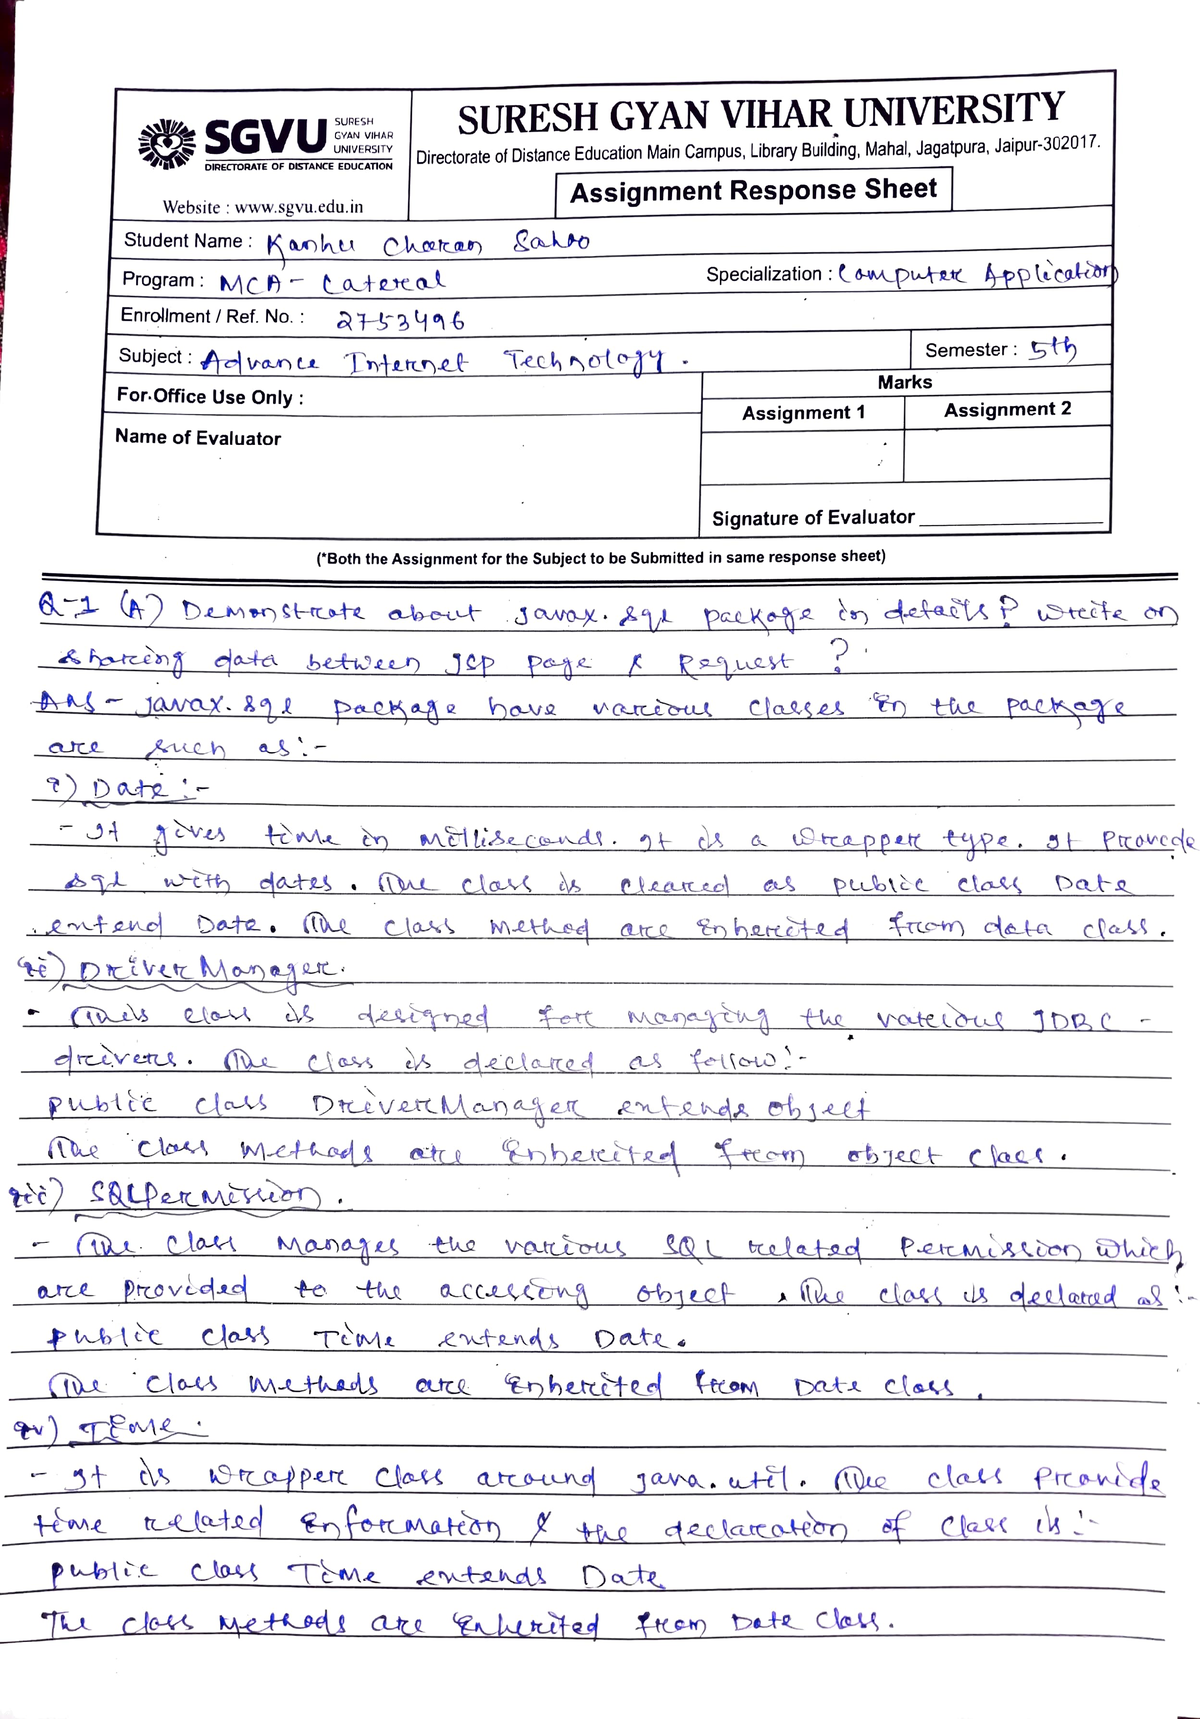 SGVU SURESH GYAN VIHAR UNIVERSITY
DIRECTORATE OF DISTANCE EDUCATION
Website : www.sgvu.edu.in
SURESH GYAN VIHAR UNIVERSITY
Directorate of Distance Education Main Campus, Library Building, Mahal, Jagatpura, Jaipur-302017.
Assignment Response Sheet
Student Name : Kanhu Charan Sahoo
Program : MCA - Latereal Specialization : Computer Application
Enrollment / Ref. No. : 2753496
Subject : Advance Internet Technology. Semester : 5th
For Office Use Only : Marks
Assignment 1 Assignment 2
Name of Evaluator
Signature of Evaluator
(*Both the Assignment for the Subject to be Submitted in same response sheet)
Q-1 (A) Demonstrate about javax.sql package in details? Write on
sharing data between JSP page & Request ?
Ans - javax.sql package have various classes in the package
are such as:-
i) Date :-
- It gives time in milliseconds. It is a wrapper type. It provide
sql with dates. The class is cleared as public class Date
entend Date. The class method are inherited from data class.
ii) DriverManager.
- This class is designed for managing the various JDBC -
drivers. The class is declared as follow:-
public class DriverManager entends object
The class methods are inherited from object class.
iii) SQLPermission.
- The class manages the various SQL related permission which
are provided to the accessing object. The class is declared as:-
public class Time entends Date.
The class methods are inherited from Date class.
iv) Time:
- It is wrapper class around java.util. The class provide
time related information & the declaration of class is:-
public class Time entends Date
The class methods are inherited from Date class.